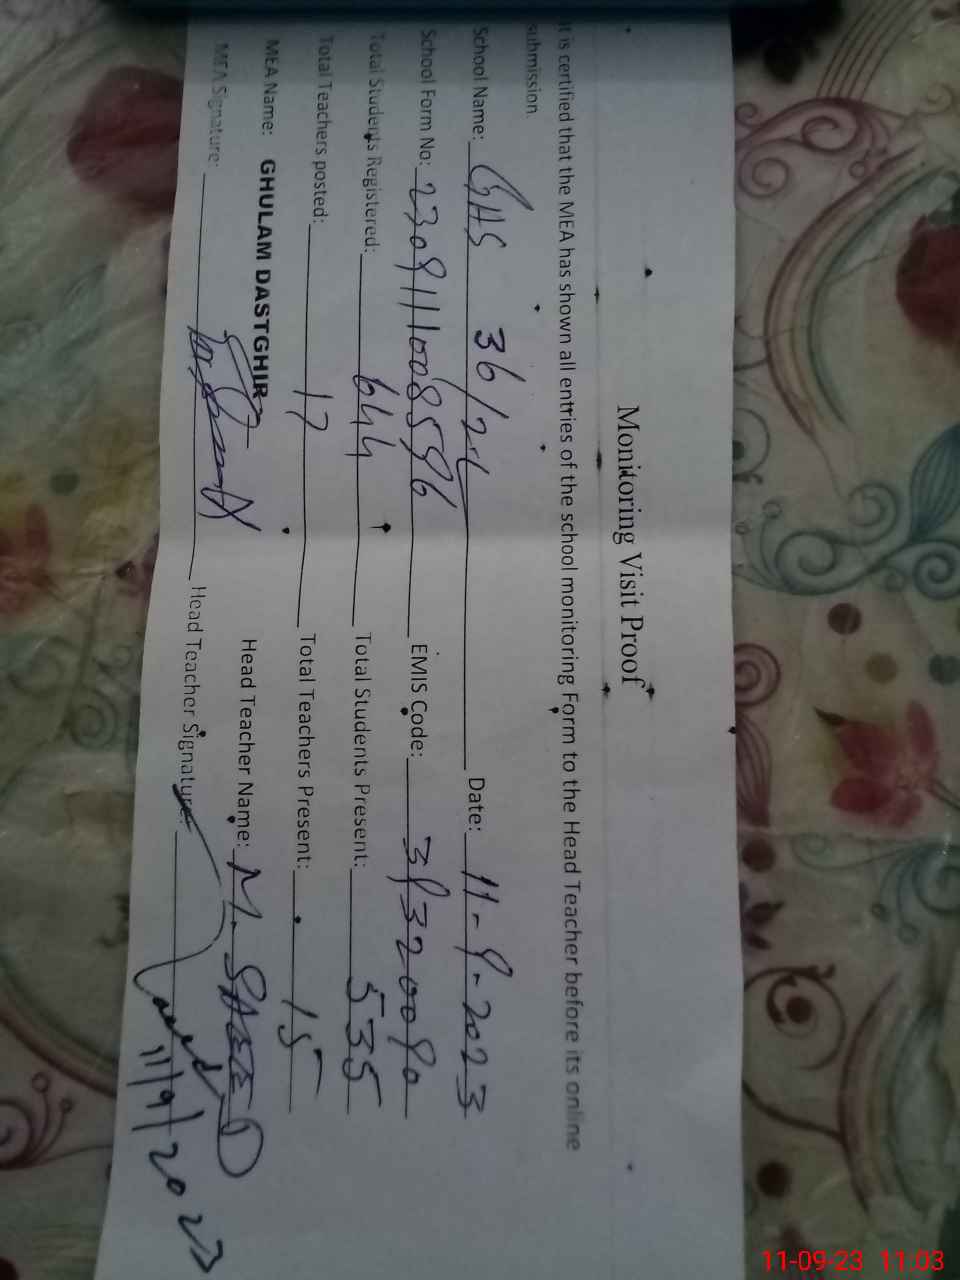 Monitoring Visit Proof
It is certified that the MEA has shown all entries of the school monitoring Form to the Head Teacher before its online
submission.
School Name: GHS 36/2-L Date: 11-9-2023
School Form No: 2309111008596 EMIS Code: 39320090
Total Students Registered: 644 Total Students Present: 535
Total Teachers posted: 17 Total Teachers Present: 15
MEA Name: GHULAM DASTGHIR Head Teacher Name: M. SAEED
MEA Signature: Head Teacher Signature:
11/9/2023
11-09-23 11:03